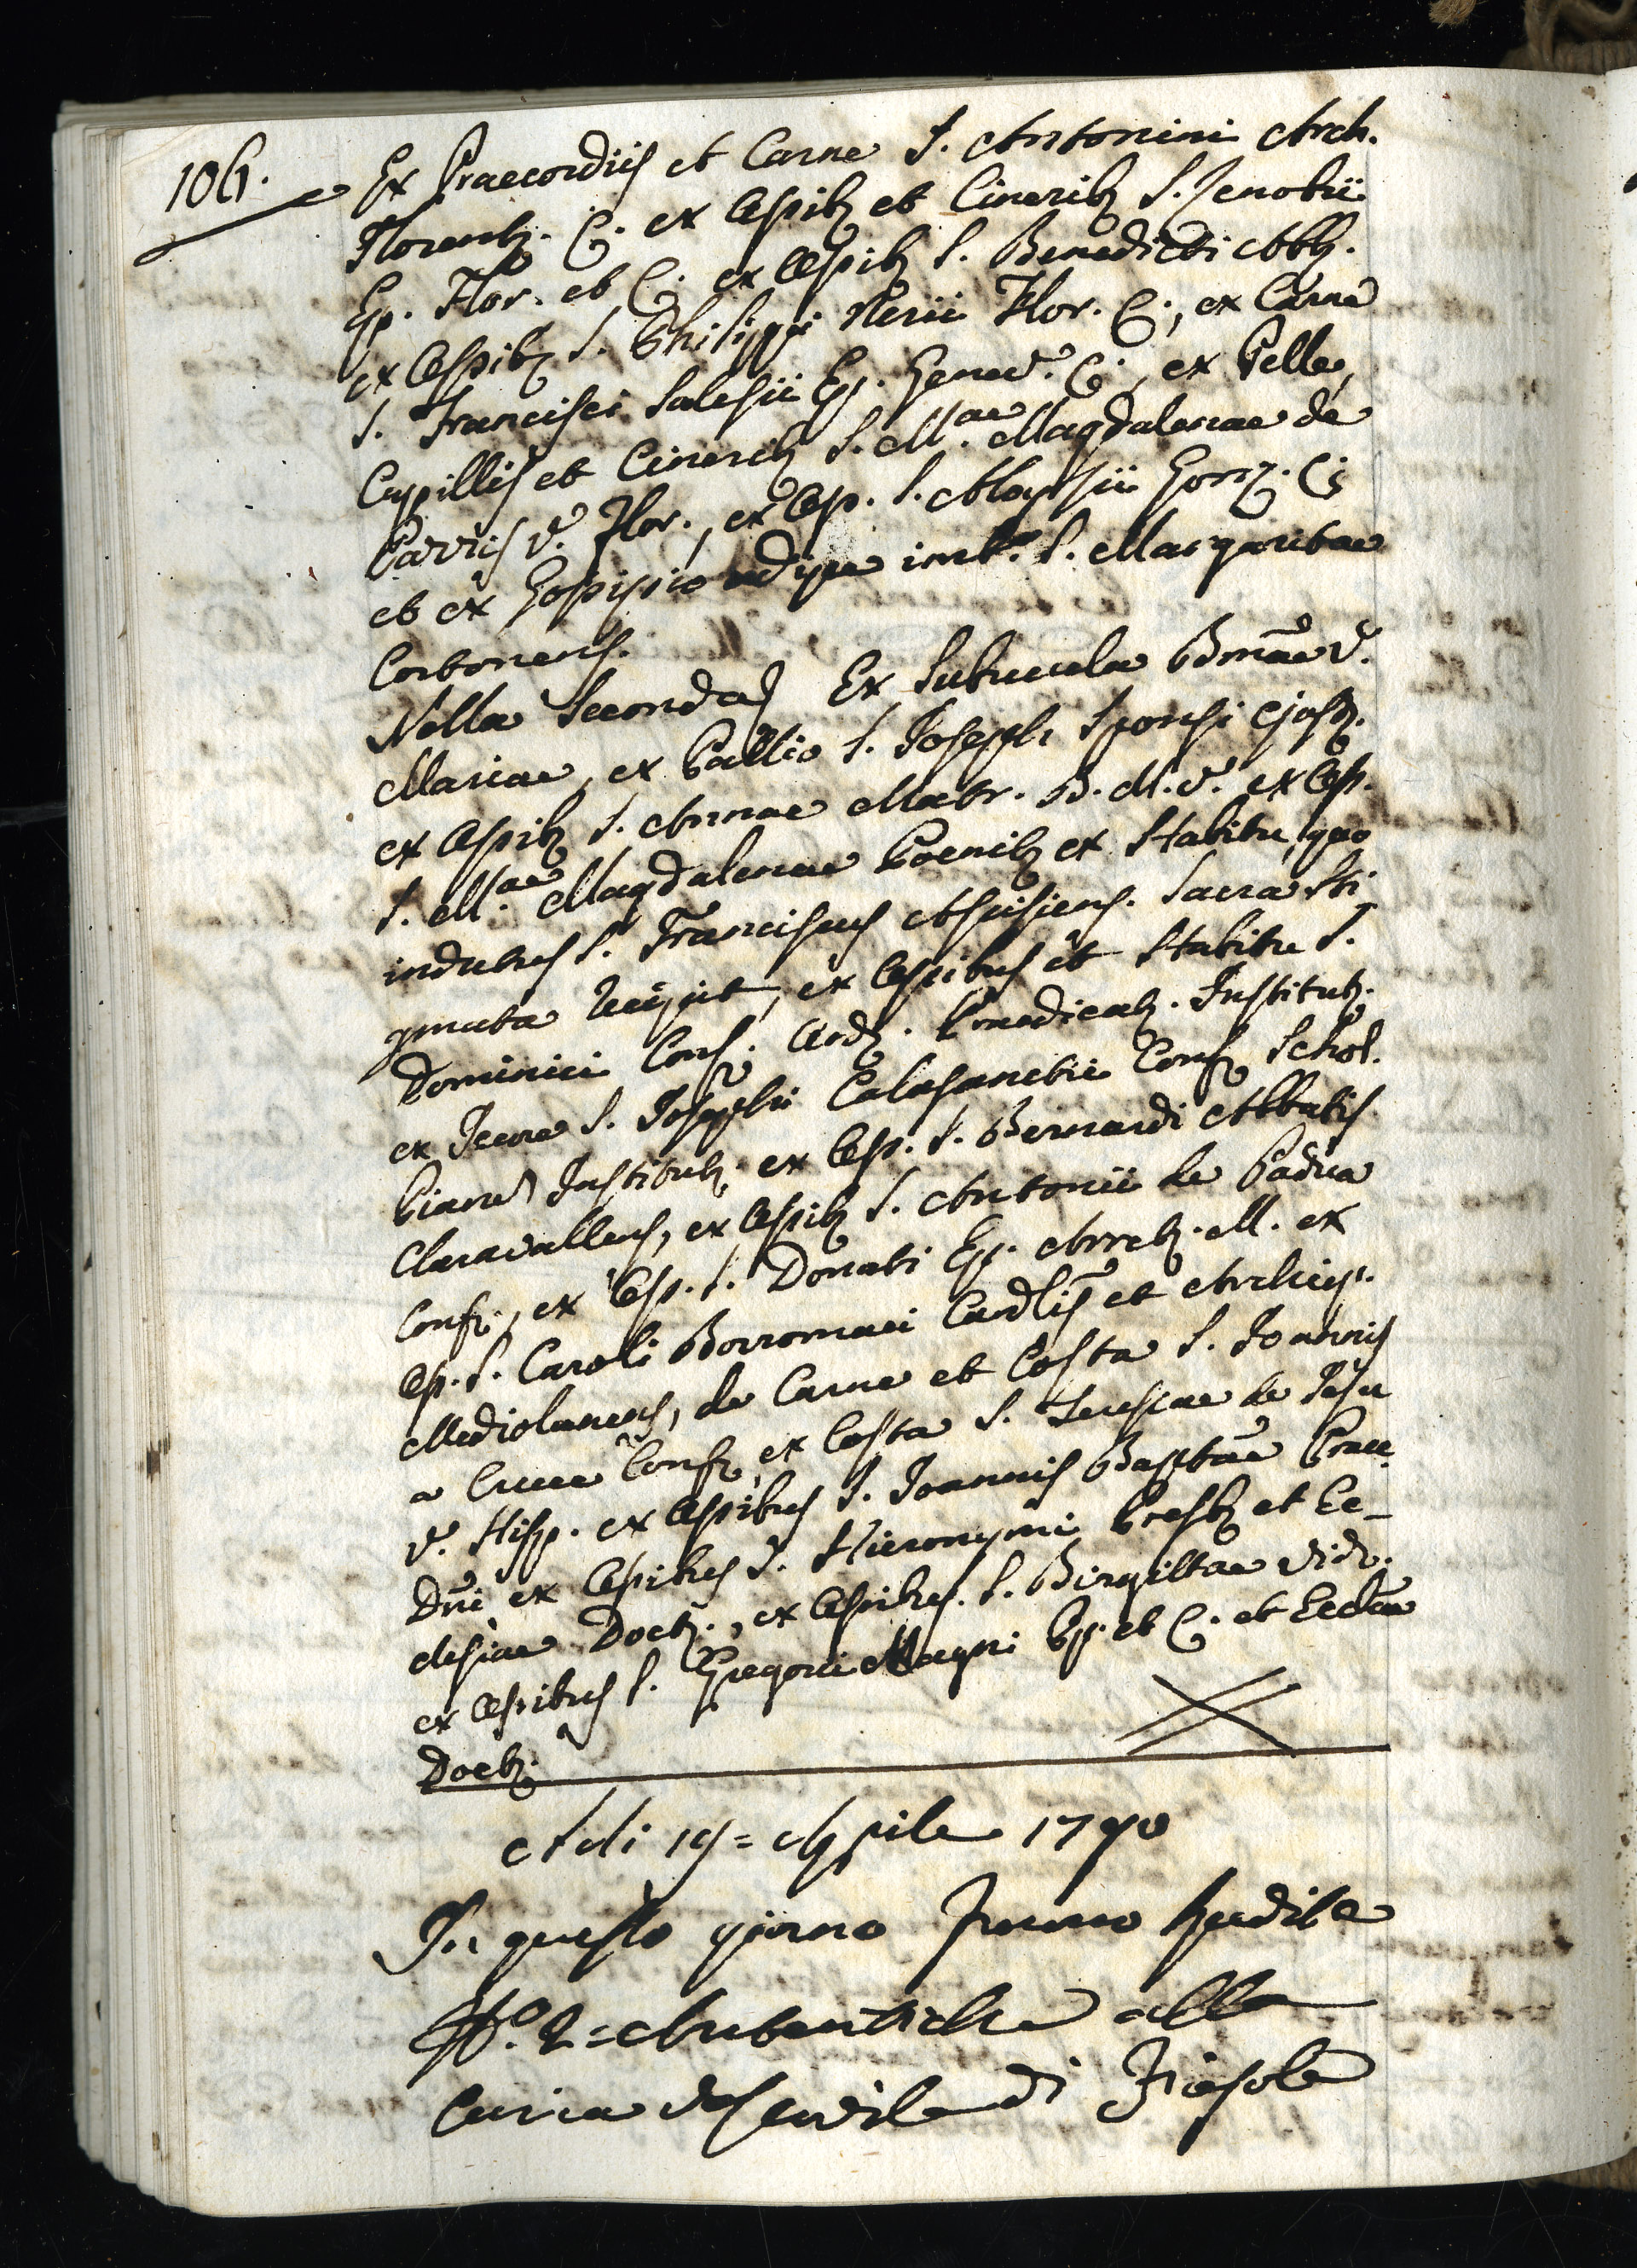 106.
Ex Praecordiis et Carne S. Antonini Arch.
Florentz. C. ex Ossibz et Cineribz S. Zenobii
Ep. Flor. et C. ex Ossibz S. Benedicti Abb.
ex Ossibz S. Philippi Nerii Flor. C., ex Carne
S. Francisci Salesii Ep. Genev. C., ex Pelle,
Capillis et Cineribz S. M.ae Magdalenae de
Pazzis V. Flor., ex Oss. S. Aloysii Gonz. C.
et ex Gossipio S. Margaritae
Cortonens.
Nella Seconda) Ex Subucula Bmae V.
Mariae, ex Pallio S. Joseph Sponsi ejusd.
ex Ossibz S. Annae Matr. B. M. V. ex Oss.
S. M.ae Magdalenae Poenitz ex Habitu, quo
indutus S. Franciscus Assisiens. Sacra Sti-
gmata recepit, ex Ossibus et Habitu S.
Dominici Conf. Ord. Praedicatz. Institutz.
ex Jecore S. Josephi Calasanctii Conf. Schol.
Piarum Institutz. ex Oss. S. Bernardi Abbatis
Claravallens, ex Ossibz S. Antonii de Padua
Conf., ex Oss. S. Donati Ep. Arretz. M. ex
Oss. S. Caroli Borromaei Cardlis et Archiep.
Mediolanens, de Carne et Costa S. Joannis
a Cruce Conf. ex Costa S. Teresiae de Jesu
V. Hisp. ex Ossibus S. Joannis Baptae Praec.
Dni ex Ossibus S. Hieronymi Presbz et Ec-
clesiae Doctz., ex Ossibus S. Birgittae Vid.
ex Ossibus S. Gregorii Magni Pp. et C. et Eccliae
Doctz.
A di 19 = Aprile 1790
In questo giorno furono spedite
N.o 2 = Autentiche alla
Curia Vescovile di Fiesole